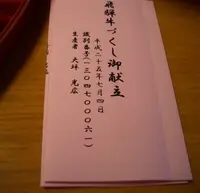 飛騨牛づくし御献立
平成二十五年七月四日
識別番号(一三〇四七〇〇〇六一)
生産者　大坪　光広